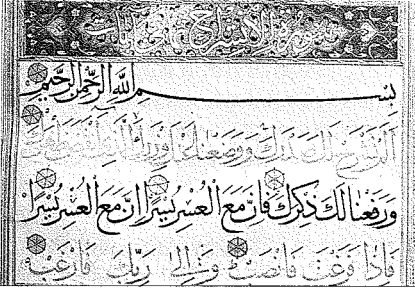 سورة الانشراح
بِسْمِ اللهِ الرَّحْمنِ الرَّحِيمِ
اَلَمْ نَشْرَحْ لَكَ صَدْرَكَ وَوَضَعْنَا عَنْكَ وِزْرَكَ الَّذِي اَنْقَضَ ظَهْرَكَ
وَرَفَعْنَا لَكَ ذِكْرَكَ فَاِنَّ مَعَ الْعُسْرِ يُسْرًا اِنَّ مَعَ الْعُسْرِ يُسْرًا
فَاِذَا فَرَغْتَ فَانْصَبْ وَاِلَى رَبِّكَ فَارْغَبْ